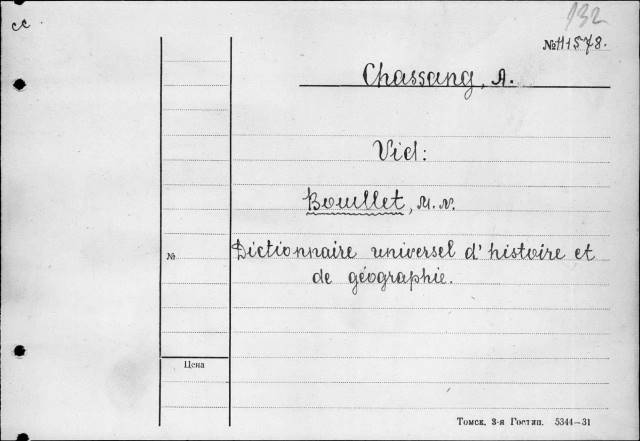 cc
132
№ 11578.
Chassang, A.
Vid:
Bouillet, M. N.
№
Dictionnaire universel d'histoire et
de géographie.
Цена
Томск, 3-я Гостип. 5344—31